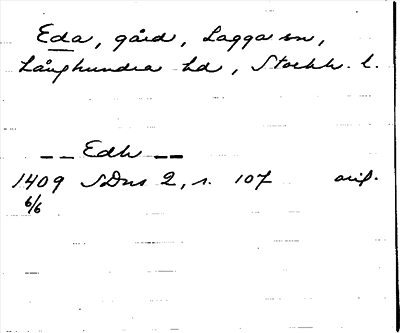 Eda, gård, Lagga sn,
Långhundra hd, Stockh. l.
— — Edh — —
1409 SDns 2, s. 107 orig.
6/6